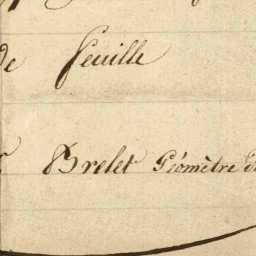 de feuille
Brelet Géomètre d